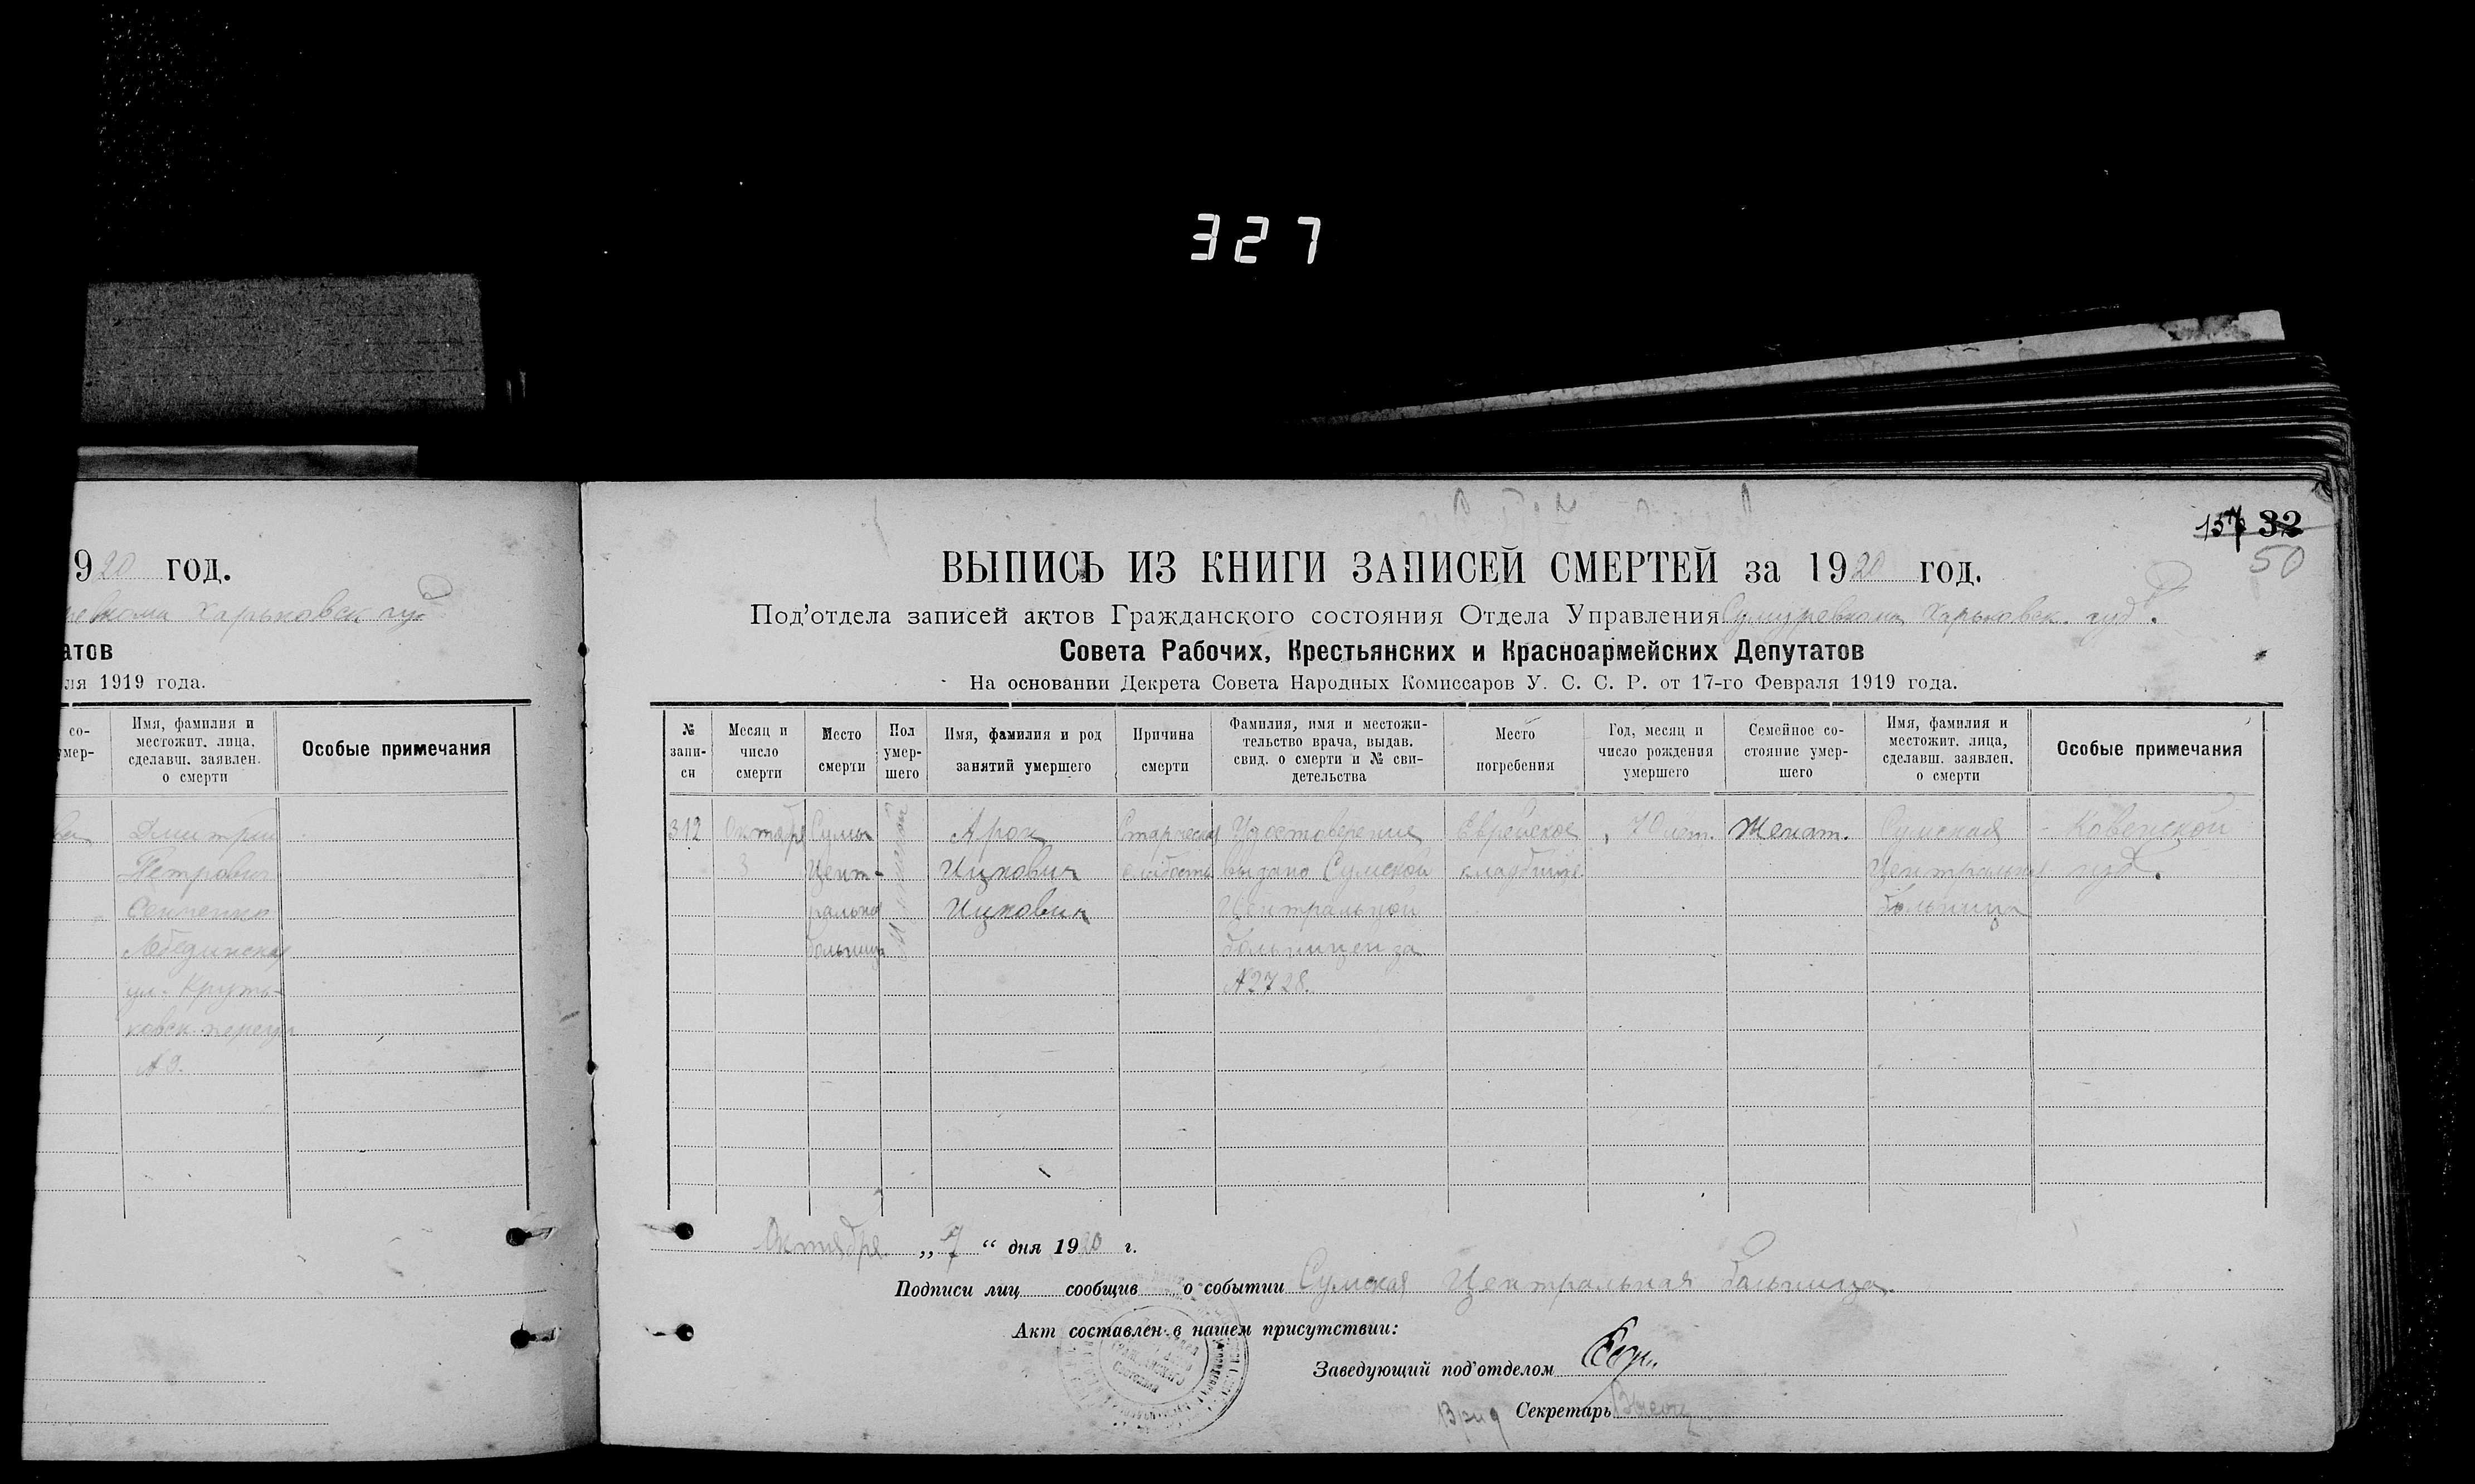 327
920 год.
Харьковск. губ
атов
ля 1919 года.
со-
умер-
Имя, фамилия и
местожит. лица,
сделавш. заявлен.
о смерти
Особые примечания
Дмитрий
Петрович
Лебединская
ул.
№ 9.
157 32
50
ВЫПИСЬ ИЗ КНИГИ ЗАПИСЕЙ СМЕРТЕЙ за 1920 год.
Под'отдела записей актов Гражданского состояния Отдела Управления Сумуревкома Харьковск. губ.
Совета Рабочих, Крестьянских и Красноармейских Депутатов
На основании Декрета Совета Народных Комиссаров У. С. С. Р. от 17-го Февраля 1919 года.
№
запи-
си
Месяц и
число
смерти
Место
смерти
Пол
умер-
шего
Имя, фамилия и род
занятий умершего
Причина
смерти
Фамилия, имя и местожи-
тельство врача, выдав.
свид. о смерти и № сви-
детельства
Место
погребения
Год, месяц и
число рождения
умершего
Семейное со-
стояние умер-
шего
Имя, фамилия и
местожит. лица,
сделавш. заявлен.
о смерти
Особые примечания
312
Октября
3
Сумы
Цент-
ральная
больница
Мужской
Арон
Ицкович
Ицкович
Старческая
слабость
Удостоверение
выдано Сумской
Центральной
больницей за
№2728.
Еврейское
кладбище
70 лет.
Женат.
Сумская
Центральная
больница
Ковенской
губ.
Октября „7“ дня 1920 г.
Подписи лиц сообщив о событии Сумская Центральная больница.
Акт составлен в нашем присутствии:
Заведующий под'отделом
Врид Секретарь